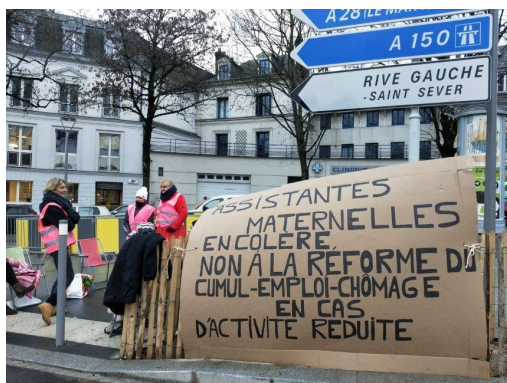 A 28 (LE MAN
A 150
RIVE GAUCHE
-SAINT SEVER
CLINIQUE
ASSISTANTES
MATERNELLES
EN COLÈRE,
NON À LA RÉFORME DU
CUMUL-EMPLOI-CHÔMAGE
EN CAS
D'ACTIVITE REDUITE